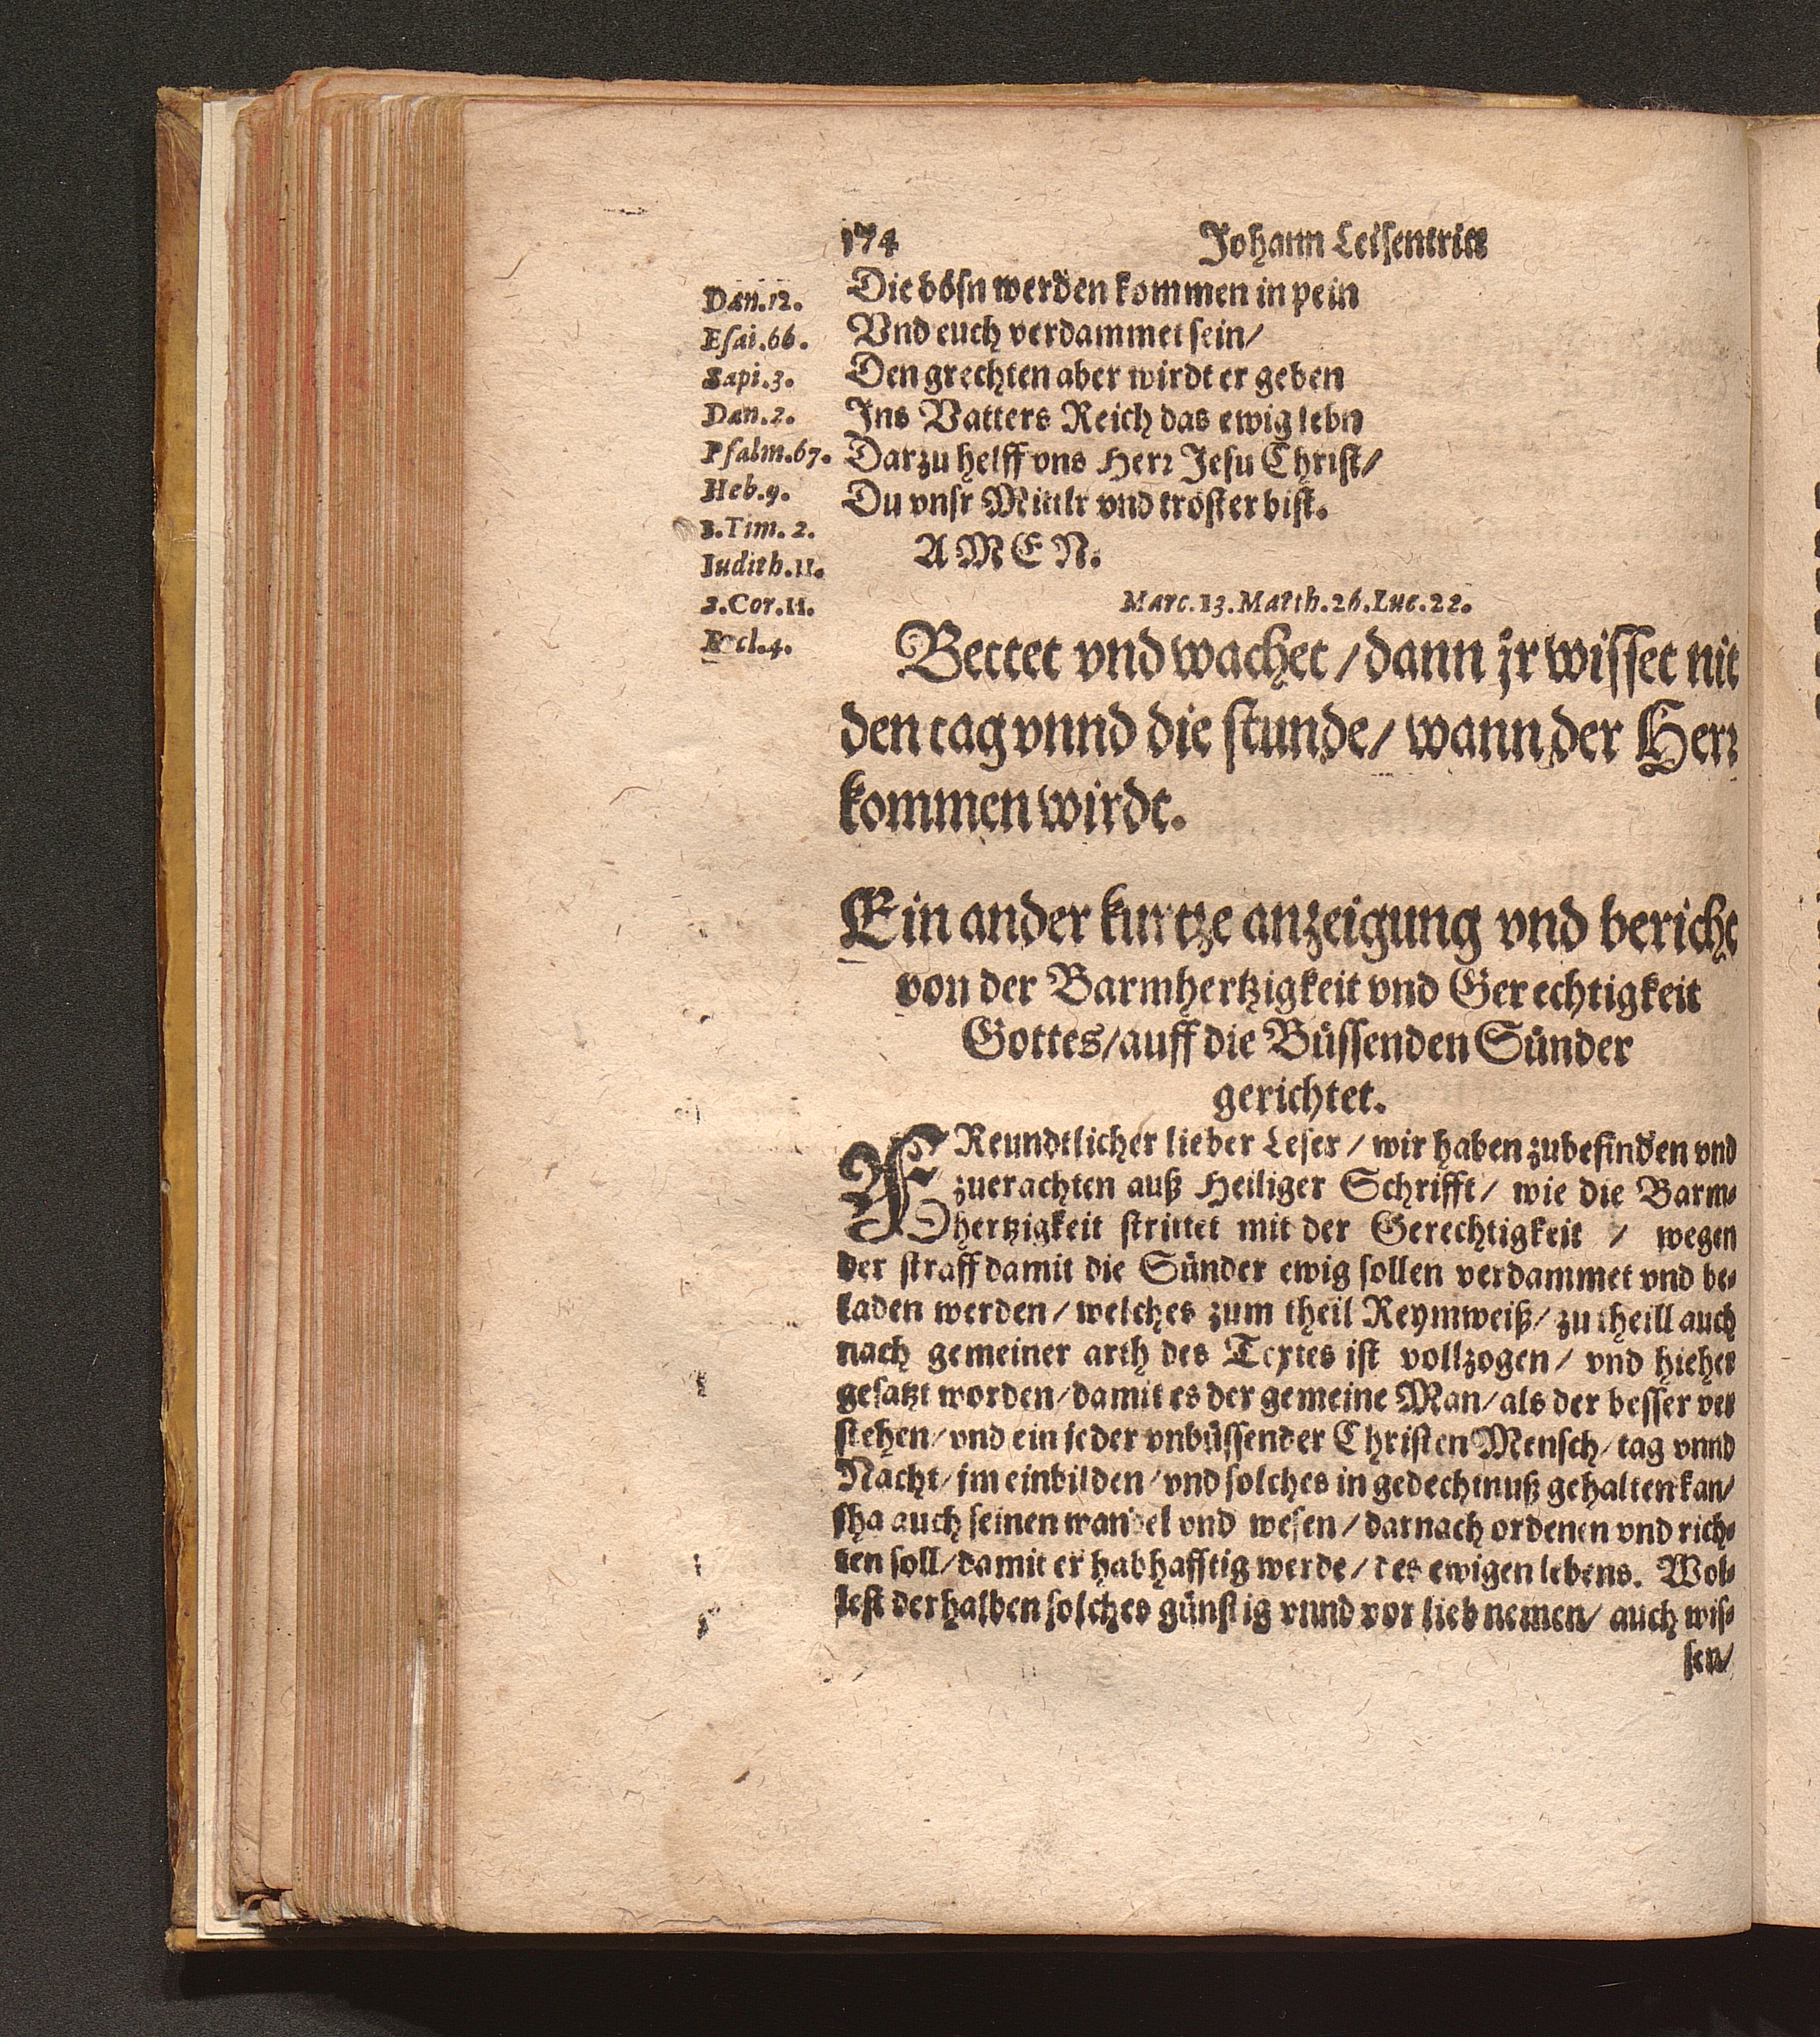 174 Johann Leisentrits
Dan.12.
Esai.66.
Sapi.3.
Dan.2.
Psalm.67.
Heb.9.
1.Tim.2.
Iudith.11.
1.Cor.11.
Eccl.4.
Die bösn werden kommen in pein
Vnd euch verdammet sein/
Den grechten aber wirdt er geben
Ins Vatters Reich das ewig lebn
Darzu helff vns Herr Jesu Christ/
Du vnsr Mittlr vnd tröster bist.
AMEN.
Marc.13.Matth.26.Luc.22.
Bettet vnd wachet/dann jr wisset nit
den tag vnnd die stunde/ wann der Herr
kommen wirdt.
Ein ander kurtze anzeigung vnd bericht
von der Barmhertzigkeit vnd Gerechtigkeit
Gottes/auff die Büssenden Sünder
gerichtet.
FReundtlicher lieber Leser/ wir haben zubefinden vnd
zuerachten auß Heiliger Schrifft/ wie die Barm⸗
hertzigkeit strittet mit der Gerechtigkeit / wegen
der straff damit die Sünder ewig sollen verdammet vnd be⸗
laden werden/ welches zum theil Reymweiß/ zu theill auch
nach gemeiner arth des Textes ist vollzogen/ vnd hieher
gesatzt worden/damit es der gemeine Man/als der besser ver
stehen/vnd ein jeder vnbüssender Christen Mensch/tag vnnd
Nacht/jm einbilden/vnd solches in gedechtnuß gehalten kan/
jha auch seinen wandel vnd wesen/ darnach ordenen vnd rich⸗
ten soll/damit er habhafftig werde/ des ewigen lebens. Wol⸗
lest derhalben solches günstig vnnd vor lieb nemen/ auch wis⸗
sen/